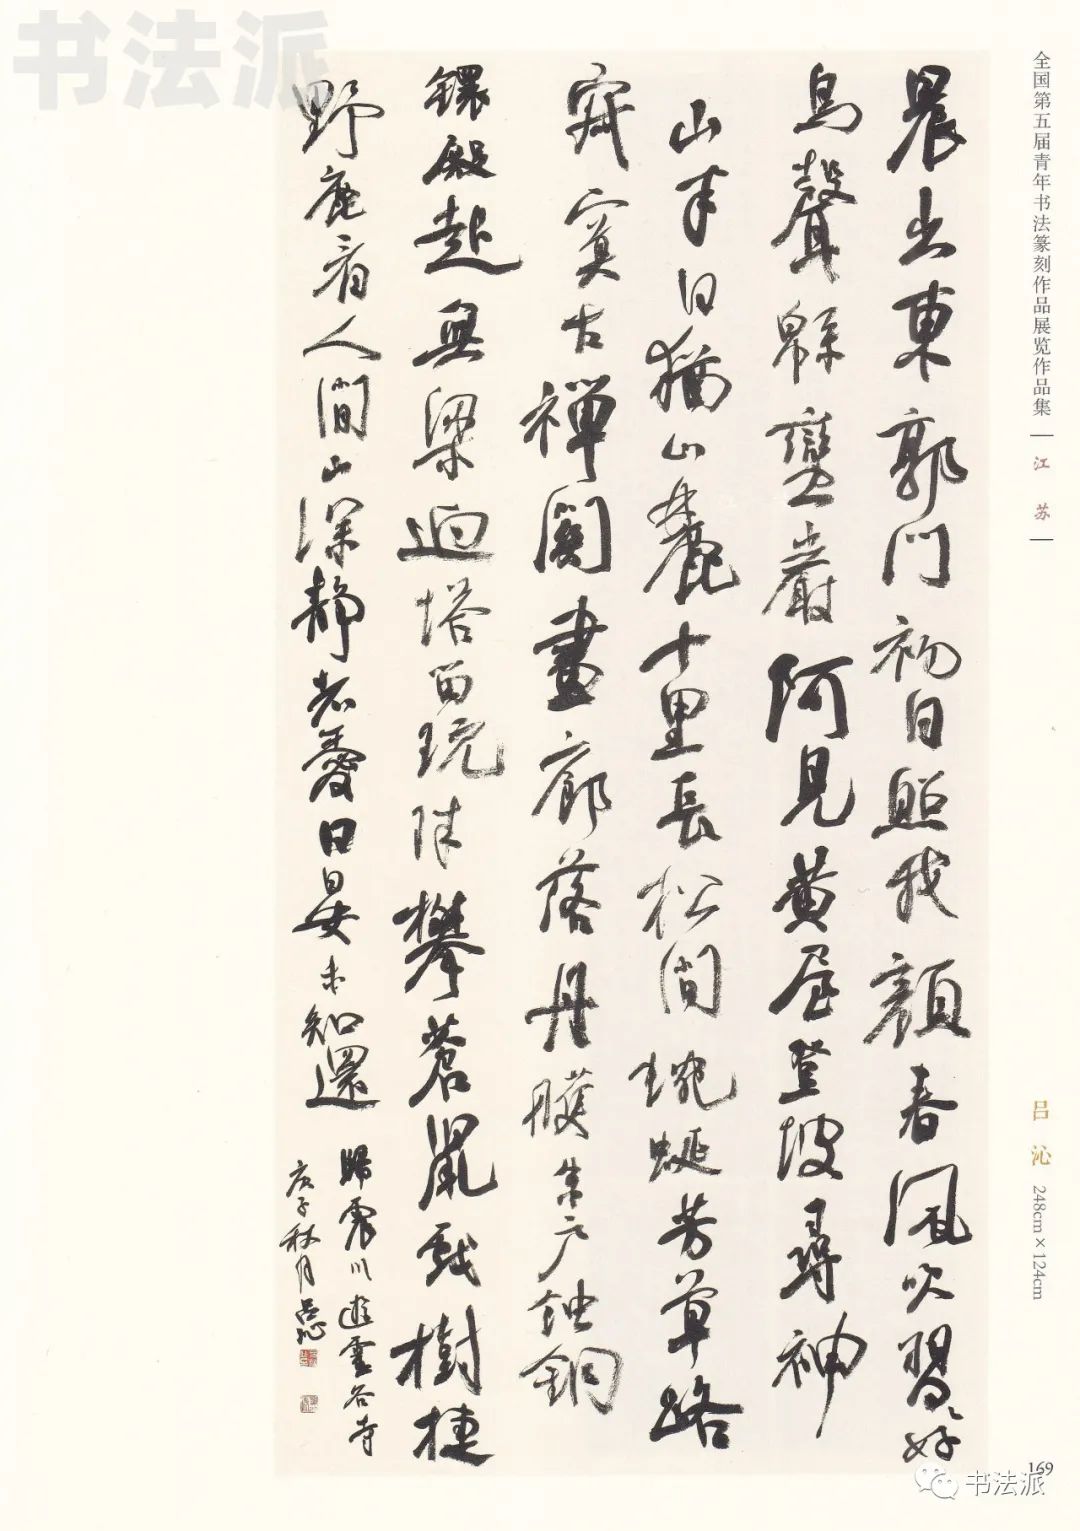 书法派
全国第五届青年书法篆刻作品展览作品集
江苏
吕沁 248cm×124cm
晨出東郭門初日照我顏春風吹習習好
鳥聲緜蠻巖阿見黃屋登坡尋神
山半日猶山麓十里長松間蜿蜒芳草路
寂寞古禪關畫廊落丹雘朱戶蝕銅
鐶殿起無梁迥塔留玩陟攀蒼鼠戲樹捷
野鹿看人閒山深靜者愛日晏未知還
歸震川遊靈谷寺
庚子秋月呂沁
169
书法派